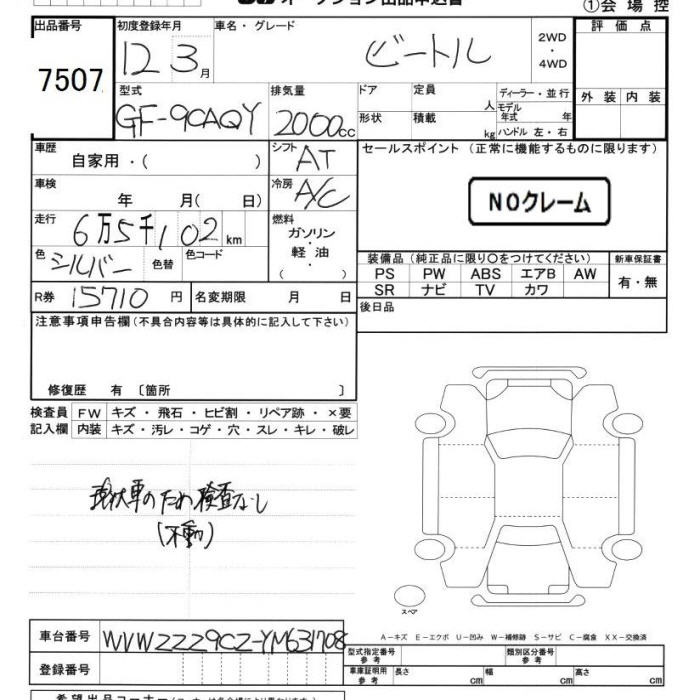 オークション出品申込書
①会場控
出品番号
7507
初度登録年月
12 3月
車名・グレード
ビートル
2WD
・
4WD
評価点
外装 内装
型式
GF-9CAQY
排気量
2000cc
ドア
形状
定員 人
積載 kg
ディーラー・並行
モデル年式 年
ハンドル 左・右
車歴
自家用・( )
シフト
AT
セールスポイント (正常に機能するものに限ります)
NOクレーム
車検
年 月( 日)
冷房
A/C
走行
6万5千102km
燃料
ガソリン
・
軽油
( )
色
シルバー
色替
色コード
装備品 (純正品に限り○をつけてください)
PS PW ABS エアB AW
SR ナビ TV カワ
新車保証書
有・無
R券 15710 円
名変期限 月 日
後日品
注意事項申告欄 (不具合内容等は具体的に記入して下さい)
修復歴 有 〔箇所 〕
検査員 FW キズ・飛石・ヒビ割・リペア跡・×要
記入欄 内装 キズ・汚レ・コゲ・穴・スレ・キレ・破レ
現状車のため検査なし
(不動)
スペア
A-キズ E-エクボ U-凹み W-補修跡 S-サビ C-腐食 XX-交換済
車台番号 WVWZZZ9CZ-YM631708
登録番号
型式指定番号
参考
類別区分番号
参考
車庫証明用
参考
長さ cm 幅 cm 高さ cm